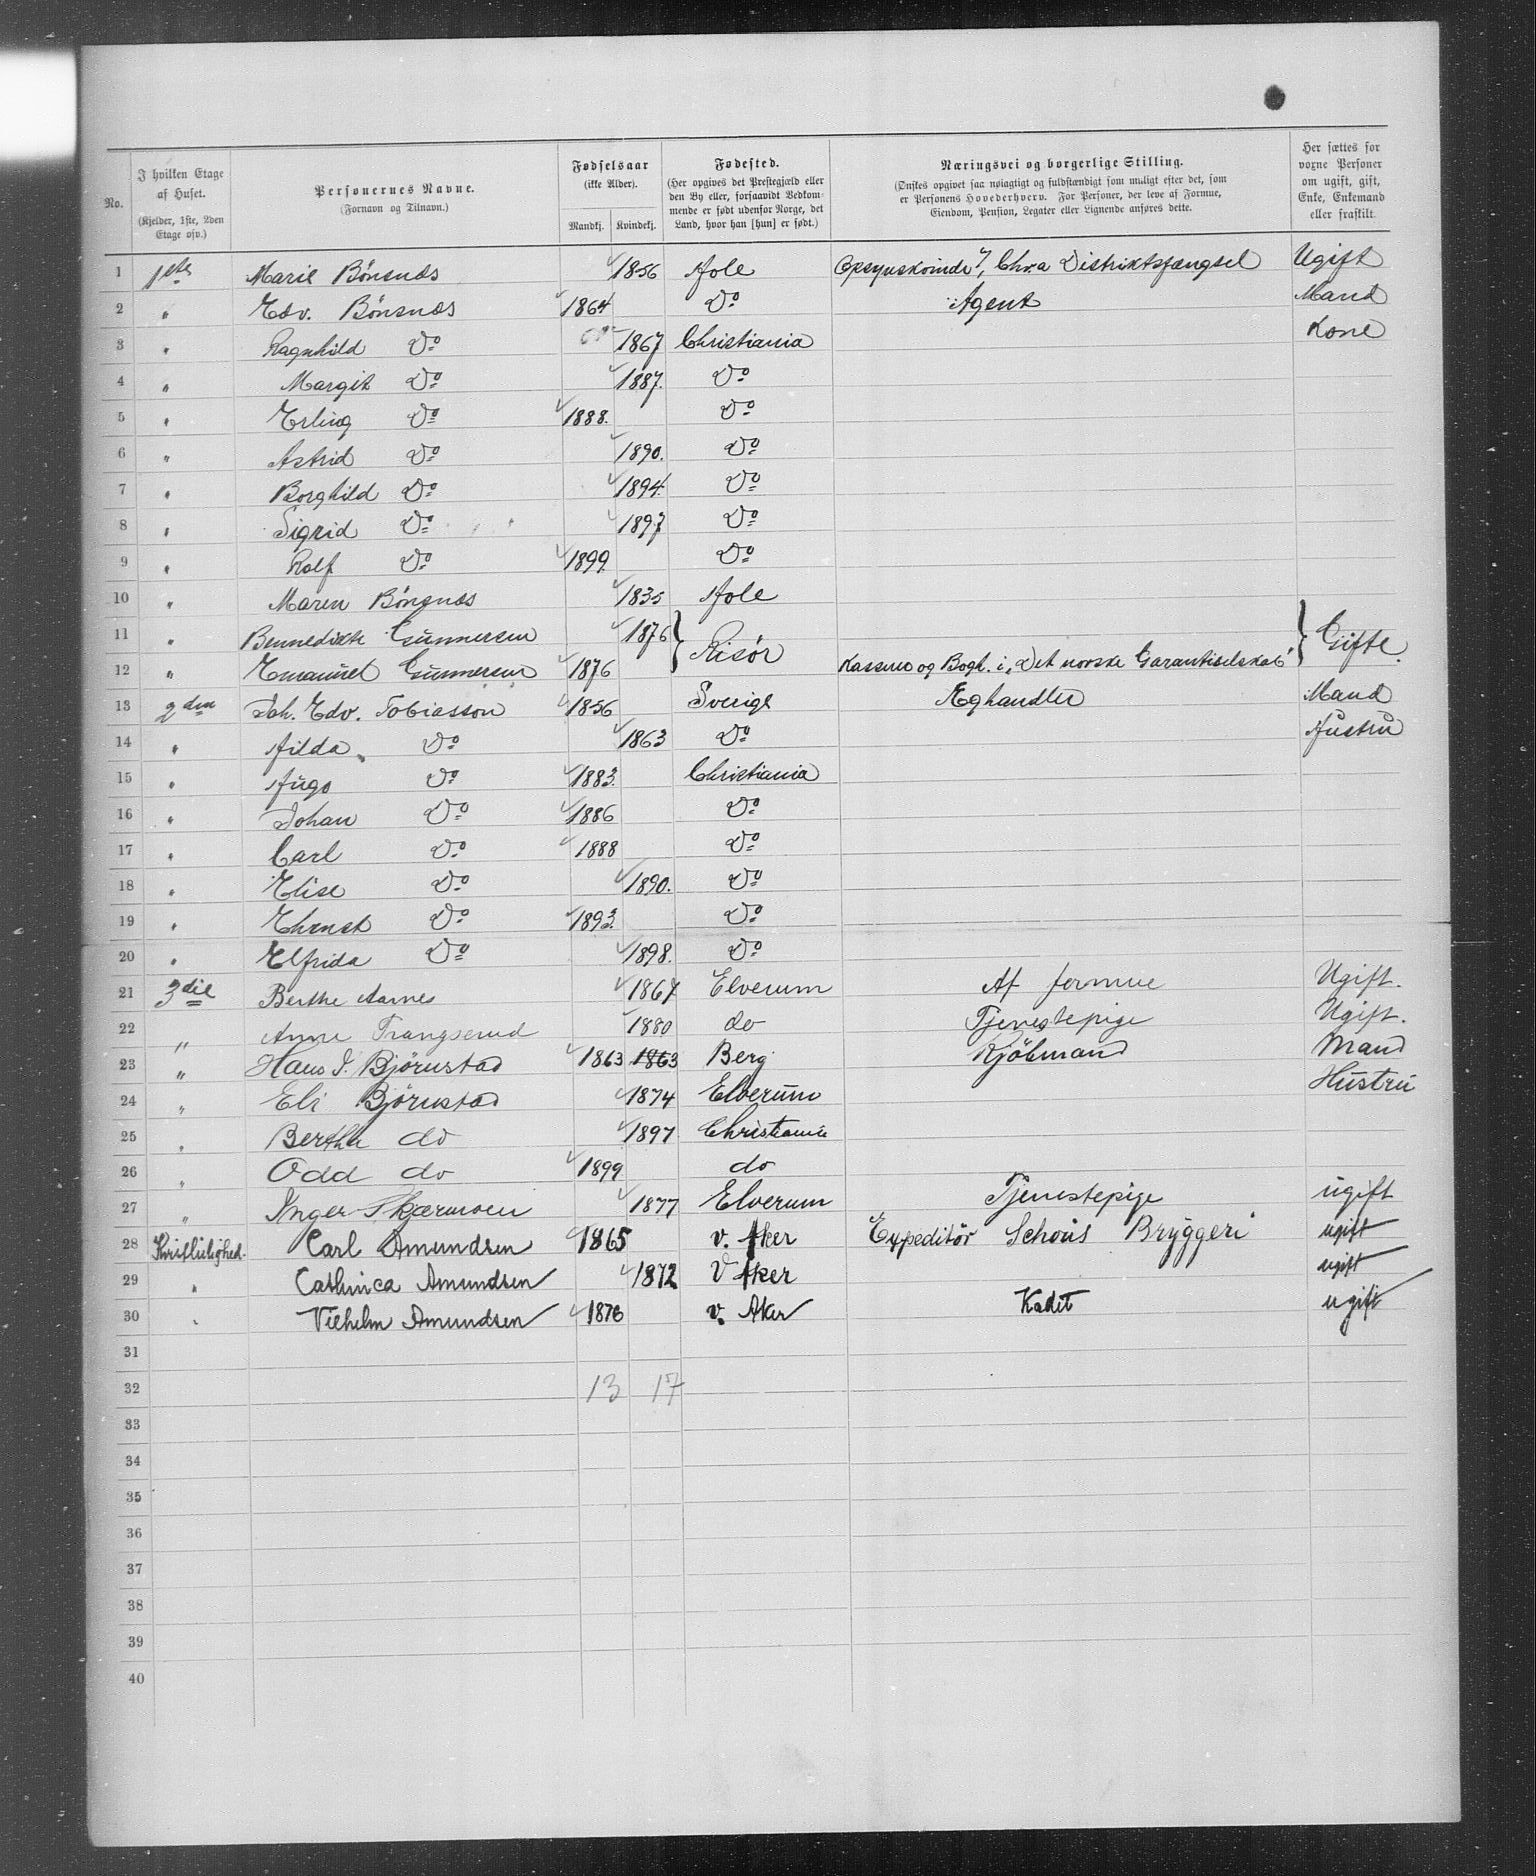 No.
I hvilken Etage af Huset.
(Kjelder, 1ste, 2den Etage osv.)
Personernes Navne.
(Fornavn og Tilnavn.)
Fødselsaar
(ikke Alder).
Mandkj. Kvindekj.
Fødested.
(Her opgives det Prestegjæld eller den By eller, forsaavidt Vedkommende er født udenfor Norge, det Land, hvor han [hun] er født.)
Næringsvei og borgerlige Stilling.
(Ønskes opgivet saa nøiagtigt og fuldstændigt som muligt efter det, som er Personens Hovederhverv. For Personer, der leve af Formue, Eiendom, Pension, Legater eller Lignende anføres dette.
Her sættes for voxne Personer om ugift, gift, Enke, Enkemand eller fraskilt.
1 1ste Marie Bönsnæs 1856 Hole Opsynskvinde, Chr.a Distriktsfængsel Ugift
2 " Edv. Bönsnæs 1864 Do Agent Mand
3 " Ragnhild Do 1867 Christiania Kone
4 " Margit Do 1887. Do
5 " Erling Do 1888. Do
6 " Astrid Do 1890. Do
7 " Borghild Do 1894. Do
8 " Sigrid Do 1897 Do
9 " Rolf Do 1899. Do
10 " Maren Bönsnæs 1835 Hole
11 " Bennedikte Gunnersen 1876 } Risör } Gifte.
12 " Emanuel Gunnersen 1876 Kasserer og Bogh. i „Det norske Garantiselskab"
13 2den Joh. Edv. Tobiasson 1856 Sverige Æghandler Mand
14 " Hilda Do 1863 Do Hustru
15 " Hugo Do 1883. Christiania
16 " Johan Do 1886 Do
17 " Carl Do 1888 Do
18 " Elise Do 1890. Do
19 " Ehrnst Do 1893. Do
20 " Elfrida Do 1898. Do
21 3die Berthe Aarnes 1867 Elverum Af formue Ugift.
22 " Anne Trangserud 1880 do Tjenestepige Ugift.
23 " Hans J. Björnstad 1863 1863 Berg Kjöbmand Mand
24 " Eli Björnstad 1874 Elverum Hustru
25 " Bertha do 1897 Christiania
26 " Odd do 1899 do
27 " Inger Skjærmoen 1877 Elverum Tjenestepige ugift
28 Carl Amundsen 1865 v. Aker Expeditör Schous Bryggeri ugift
29 " Cathinca Amundsen 1872 V Aker ugift
30 " Vilhelm Amundsen 1878 v. Aker Kadet ugift
31
32 13 17
33
34
35
36
37
38
39
40